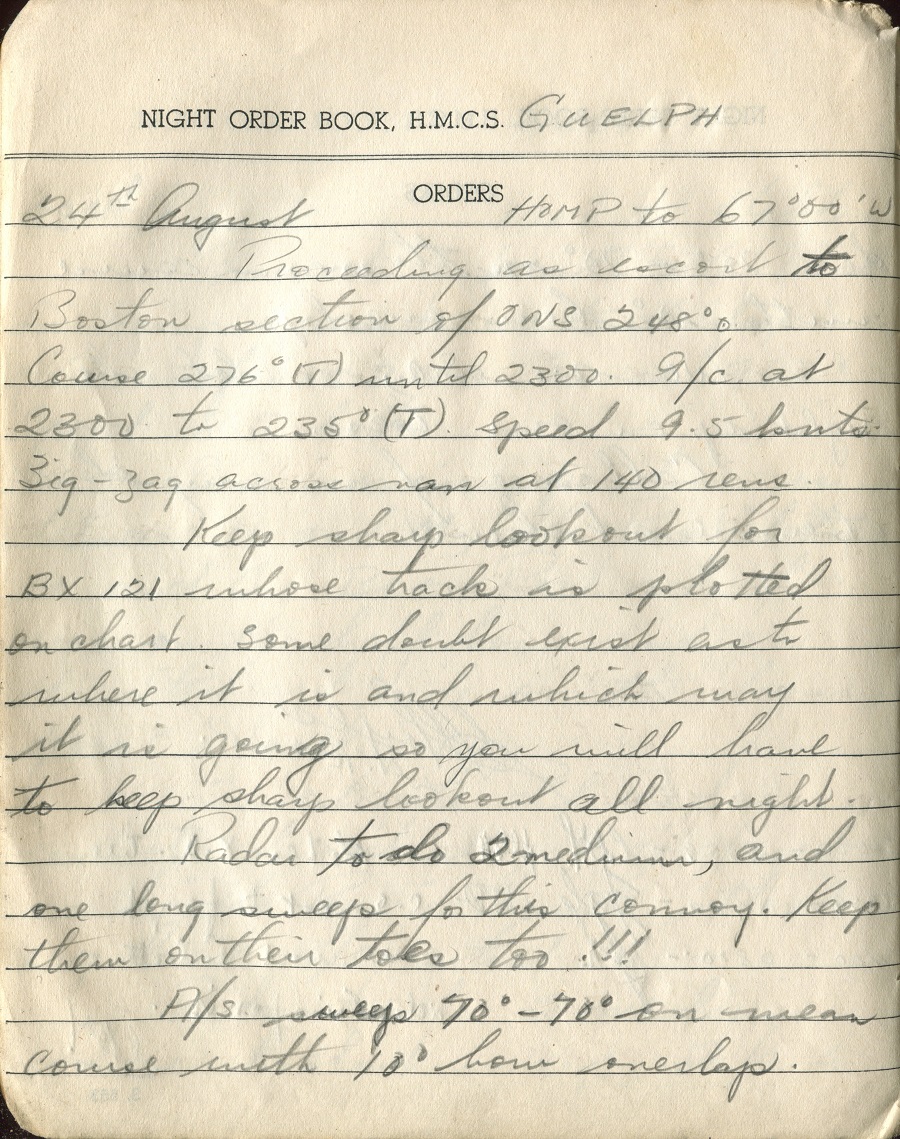 NIGHT ORDER BOOK, H.M.C.S. GUELPH
ORDERS
24th August HOMP to 67°00'W
Proceeding as escort to
Boston section of ONS 248°.
Course 276° (T) until 2300. A/c at
2300 to 235° (T). Speed 9.5 knts.
Zig-zag across van at 140 revs.
Keep sharp lookout for
BX 121 whose track is plotted
on chart. Some doubt exist as to
where it is and which way
it is going so you will have
to keep sharp lookout all night.
Radar to do 2 medium, and
one long sweeps for this convoy. Keep
them on their toes too !!!
A/s sweep 70° - 70° on mean
course with 10° bow overlap.